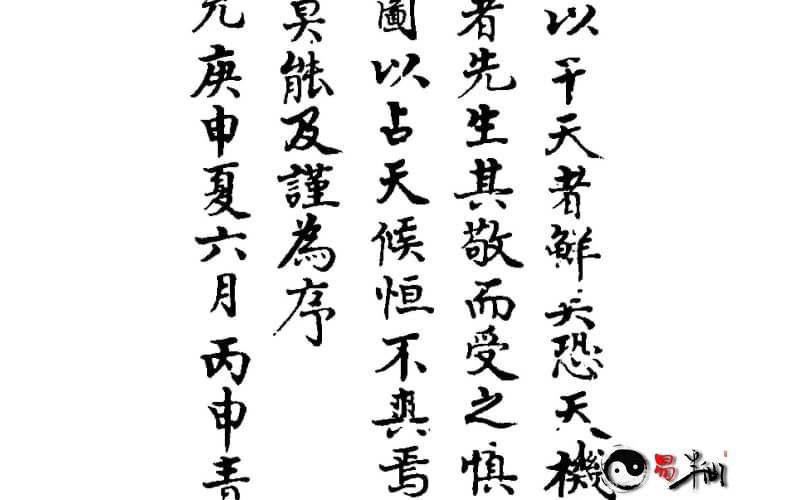 以干天者鮮矣恐天機
者先生其敬而受之慎
圖以占天候恒不爽焉
莫能及謹為序
元庚申夏六月丙申青
易半仙